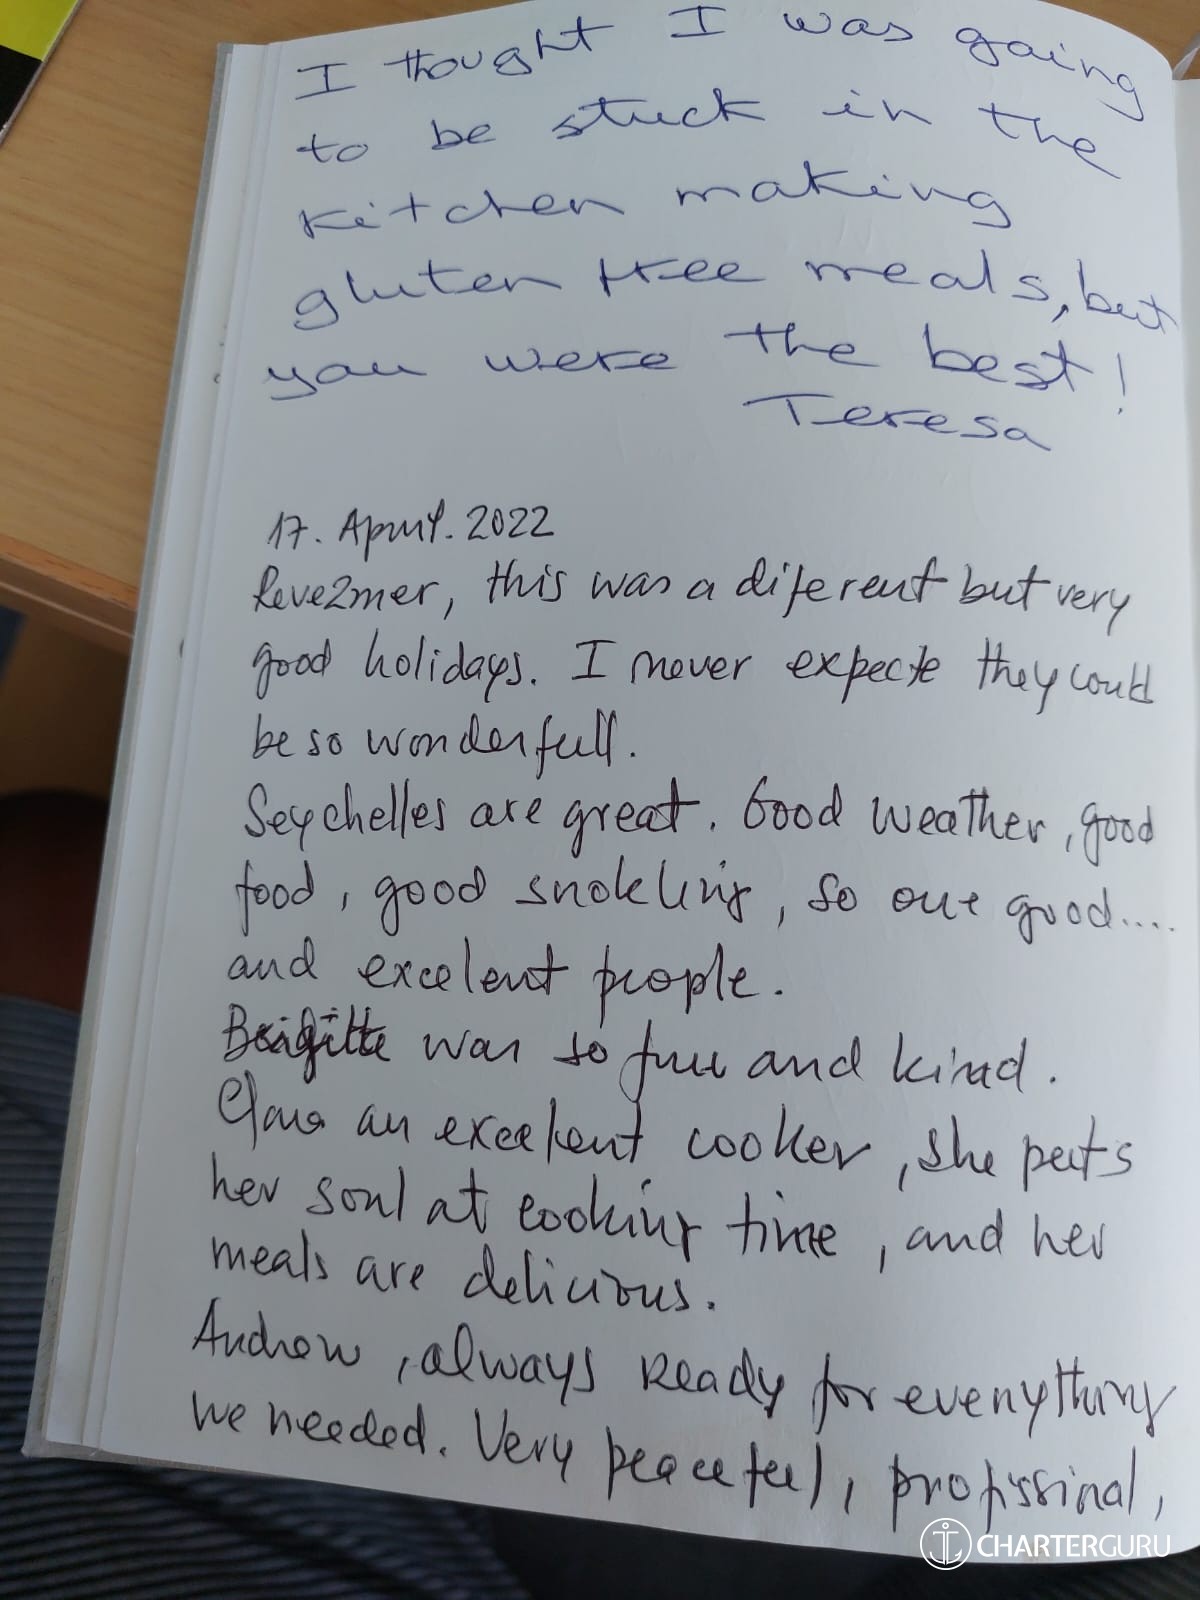 I thought I was going
to be stuck in the
kitchen making
gluten free meals, but
you were the best!
Teresa
17. April. 2022
Reve2mer, this was a diferent but very
good holidays. I never expecte they could
be so wonderfull.
Seychelles are great. Good weather, good
food, good snokling, so one good....
and excelent people.
Brigitte was so fun and kind.
an excelent cooker, she puts
her soul at cooking time, and her
meals are delicious.
Andrew, always ready for everything
we needed. Very peaceful, profissinal,
CHARTERGURU